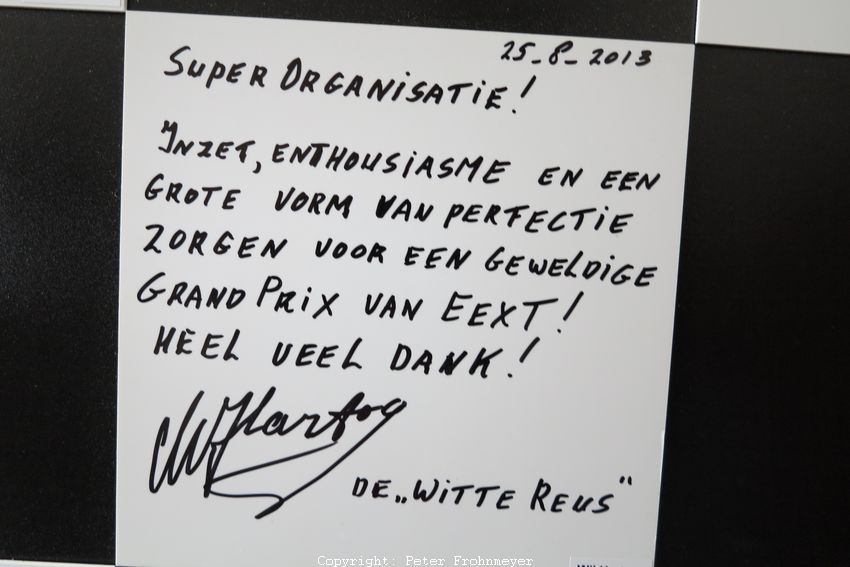 25-8-2013
SUPER ORGANISATIE!
INZET, ENTHOUSIASME EN EEN
GROTE VORM VAN PERFECTIE
ZORGEN VOOR EEN GEWELDIGE
GRAND PRIX VAN EEXT!
HEEL VEEL DANK!
Hartog
DE „WITTE REUS"
Copyright: Peter Frohnmeyer